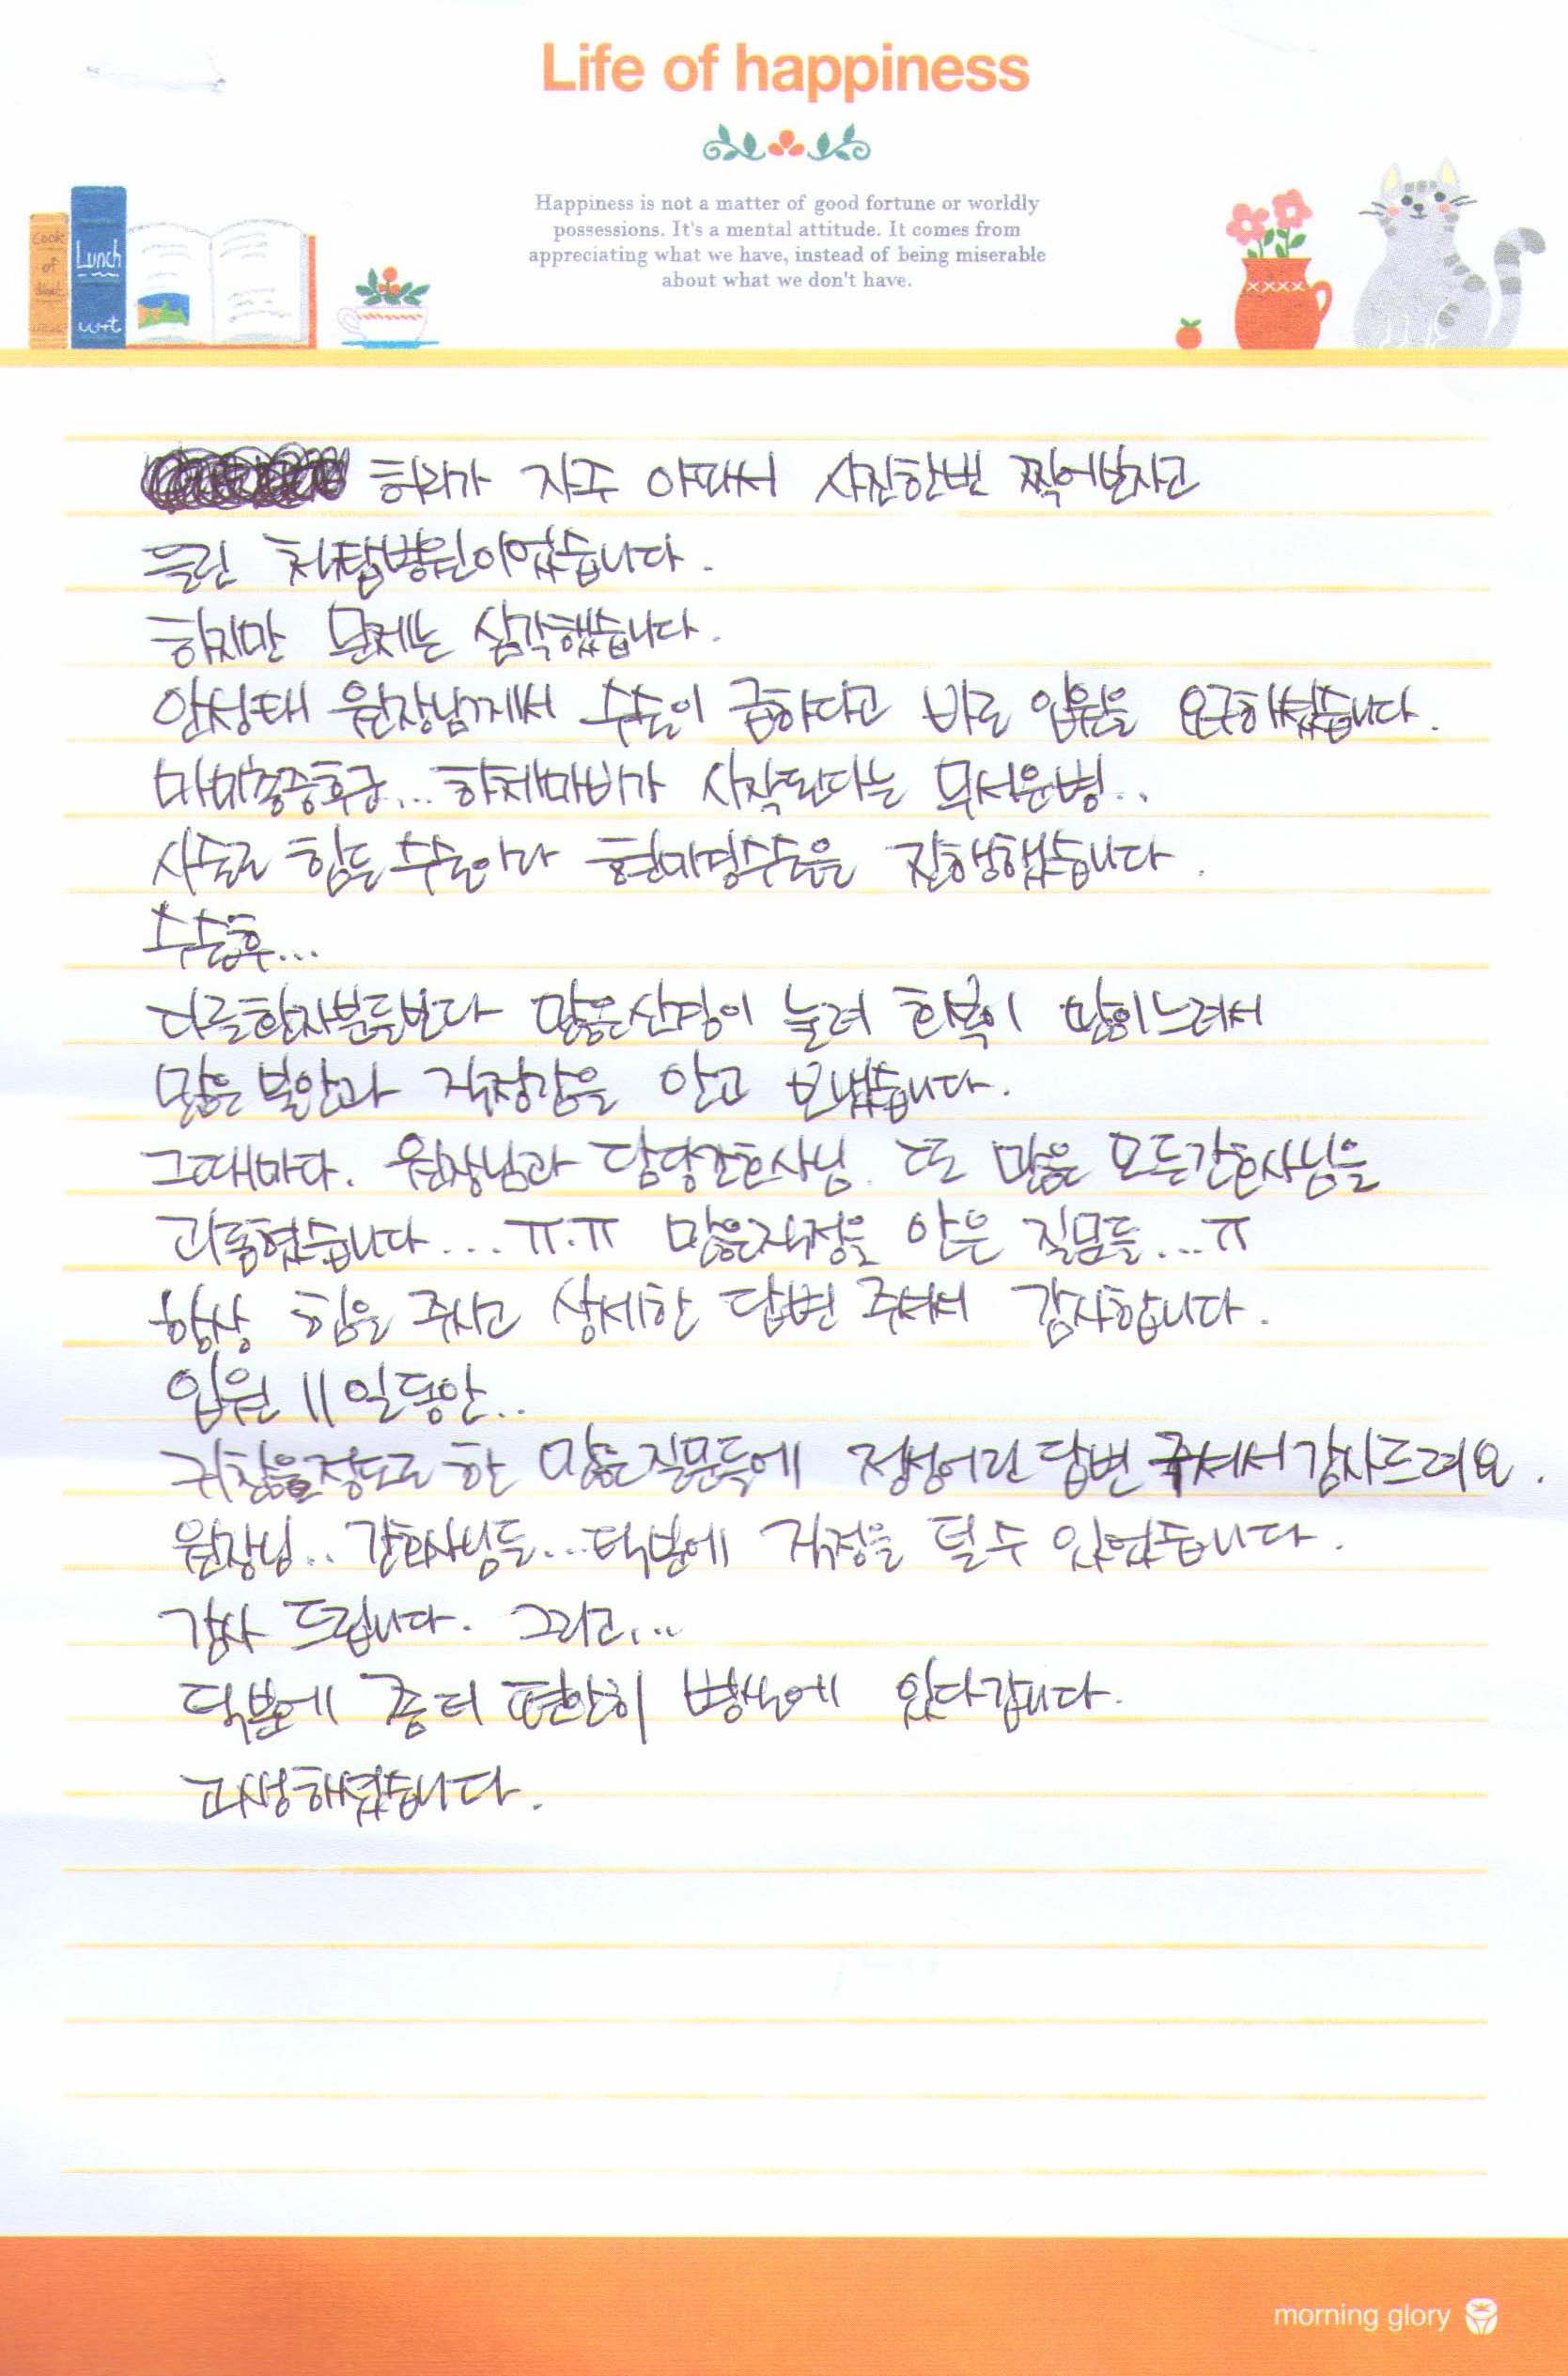 Life of happiness
Happiness is not a matter of good fortune or worldly
possessions. It's a mental attitude. It comes from
appreciating what we have, instead of being miserable
about what we don't have.
Cook
of
Lunch
허리가 자주 아파서 사진한번 찍어보자고
들린 척탑병원이었습니다.
하지만 문제는 심각했습니다.
안성태 원장님께서 수술이 급하다고 바로 입원을 요구하셨습니다.
마미총증후군... 하체마비가 시작된다는 무서운병..
사술로 힘든 수술이라 현미경수술을 진행했습니다.
수술후...
다른환자분들보다 많은신경이 눌려 회복이 많이느려서
많은 불안과 걱정감을 안고 보냈습니다.
그때마다. 원장님과 담당간호사님. 또 많은 모든간호사님을
괴롭혔습니다... ㅠ.ㅠ 많은걱정을 안은 질문들...ㅠ
항상 힘을 주시고 상세한 답변 주셔서 감사합니다.
입원 11일동안..
귀찮을정도로 한 많은질문들에 정성어린 답변 주셔서감사드려요.
원장님.. 간호사님들... 덕분에 걱정을 덜수 있었습니다.
감사 드립니다. 그리고...
덕분에 좀더 편안히 병실에 있다갑니다.
고생하셨습니다.
morning glory